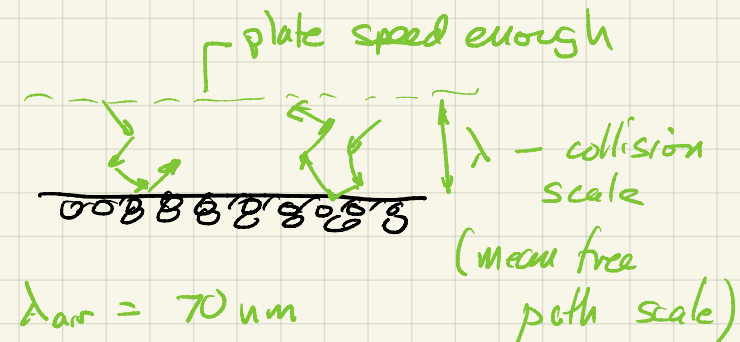 plate speed enough
λ – collision
scale
(mean free
path scale)
λair = 70 nm